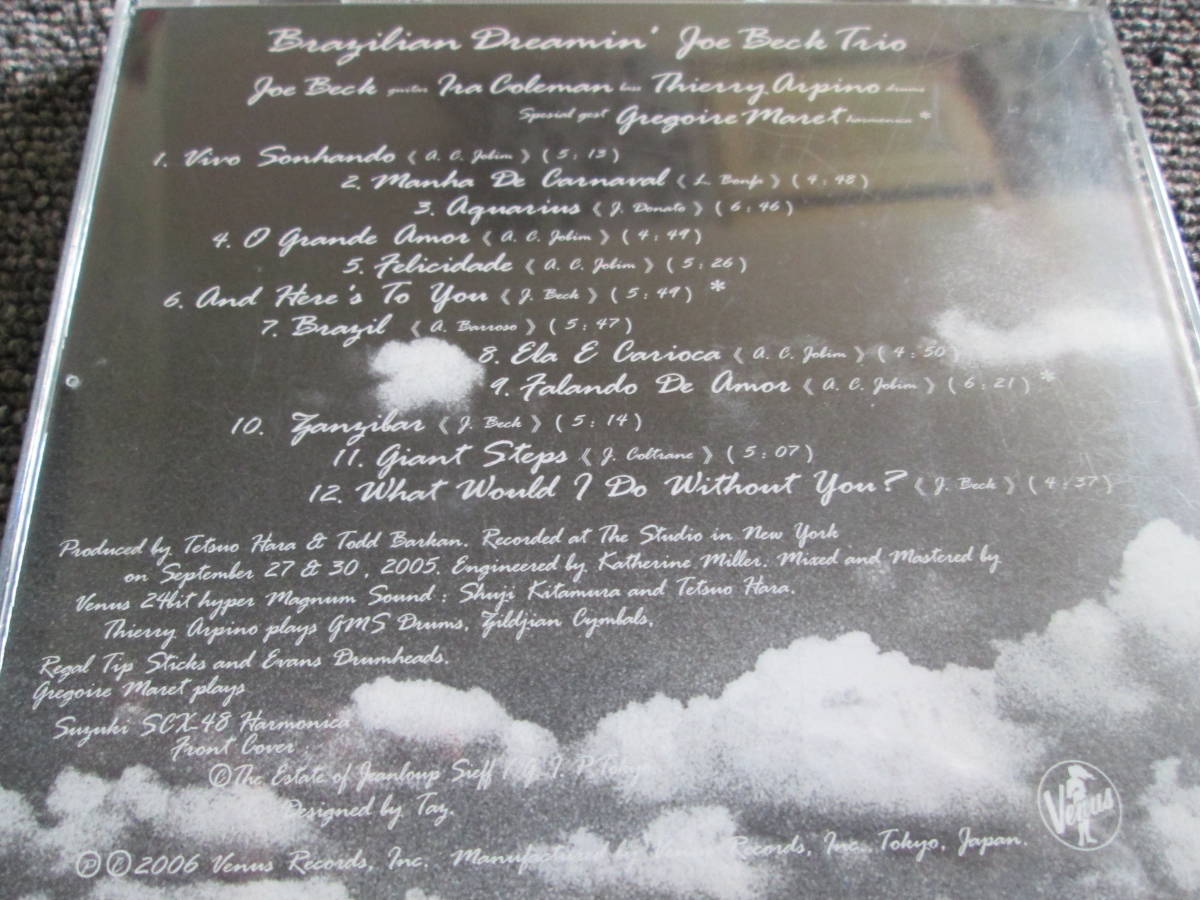 Brazilian Dreamin' Joe Beck Trio
Joe Beck guitar Ira Coleman bass Thierry Arpino drums
Spesial gest Gregoire Maret harmonica *
1. Vivo Sonhando 《 A. C. Jobim 》 ( 5 : 13 )
2. Manha De Carnaval 《 L. Bonfa 》 ( 4 : 48 )
3. Aquarius 《 J. Donato 》 ( 6 : 46 )
4. O Grande Amor 《 A. C. Jobim 》 ( 4 : 49 )
5. Felicidade 《 A. C. Jobim 》 ( 5 : 26 )
6. And Here's To You 《 J. Beck 》 ( 5 : 49 ) *
7. Brazil 《 A. Barroso 》 ( 5 : 47 )
8. Ela E Carioca 《 A. C. Jobim 》 ( 4 : 50 )
9. Falando De Amor 《 A. C. Jobim 》 ( 6 : 21 ) *
10. Zanzibar 《 J. Beck 》 ( 5 : 14 )
11. Giant Steps 《 J. Coltrane 》 ( 5 : 07 )
12. What Would I Do Without You? 《 J. Beck 》 ( 4 : 37 )
Produced by Tetsuo Hara & Todd Barkan. Recorded at The Studio in New York
on September 27 & 30 , 2005. Engineered by Katherine Miller. Mixed and Mastered by
Venus 24bit hyper Magnum Sound : Shuji Kitamura and Tetsuo Hara.
Thierry Arpino plays GMS Drums, Zildjian Cymbals,
Regal Tip Sticks and Evans Drumheads.
Gregoire Maret plays
Suzuki SCX-48 Harmonica
Front Cover :
©The Estate of Jeanloup Sieff / G. I. P. Tokyo
Designed by Taz.
Ⓟ©2006 Venus Records, Inc. Manufactured by Venus Records, Inc., Tokyo, Japan.
Venus